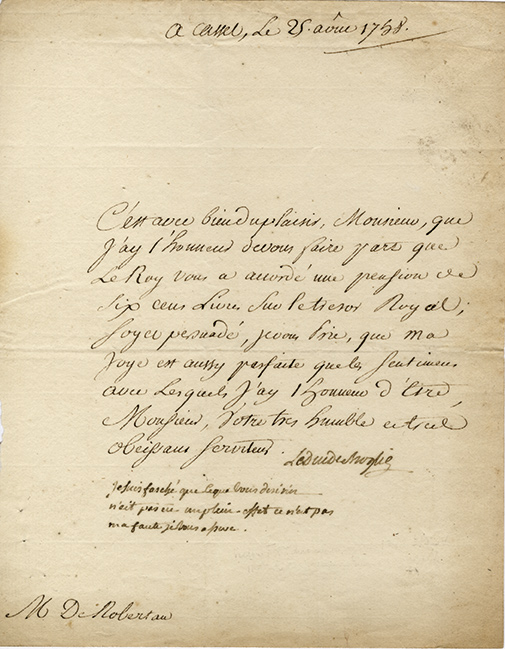 A Cassel, Le 25. aôust 1758.
C'est avec bien du plaisir, Monsieur, que
J'ay l'honneur de vous faire part que
Le Roy vous a accordé une pension de
six cens Livres sur le tresor Royal;
soyez persuadé, je vous prie, que ma
Joye est aussy parfaite que les sentimens
avec Lesquels J'ay l'honneur d'être,
Monsieur, Vôtre tres humble et tres
obeissant serviteur.
Le Duc de Broglie
Je suis faché que ce que vous desiriés
n'ait pas eu un plein effet ce n'est pas
ma faute je vous assure.
M De Robertau